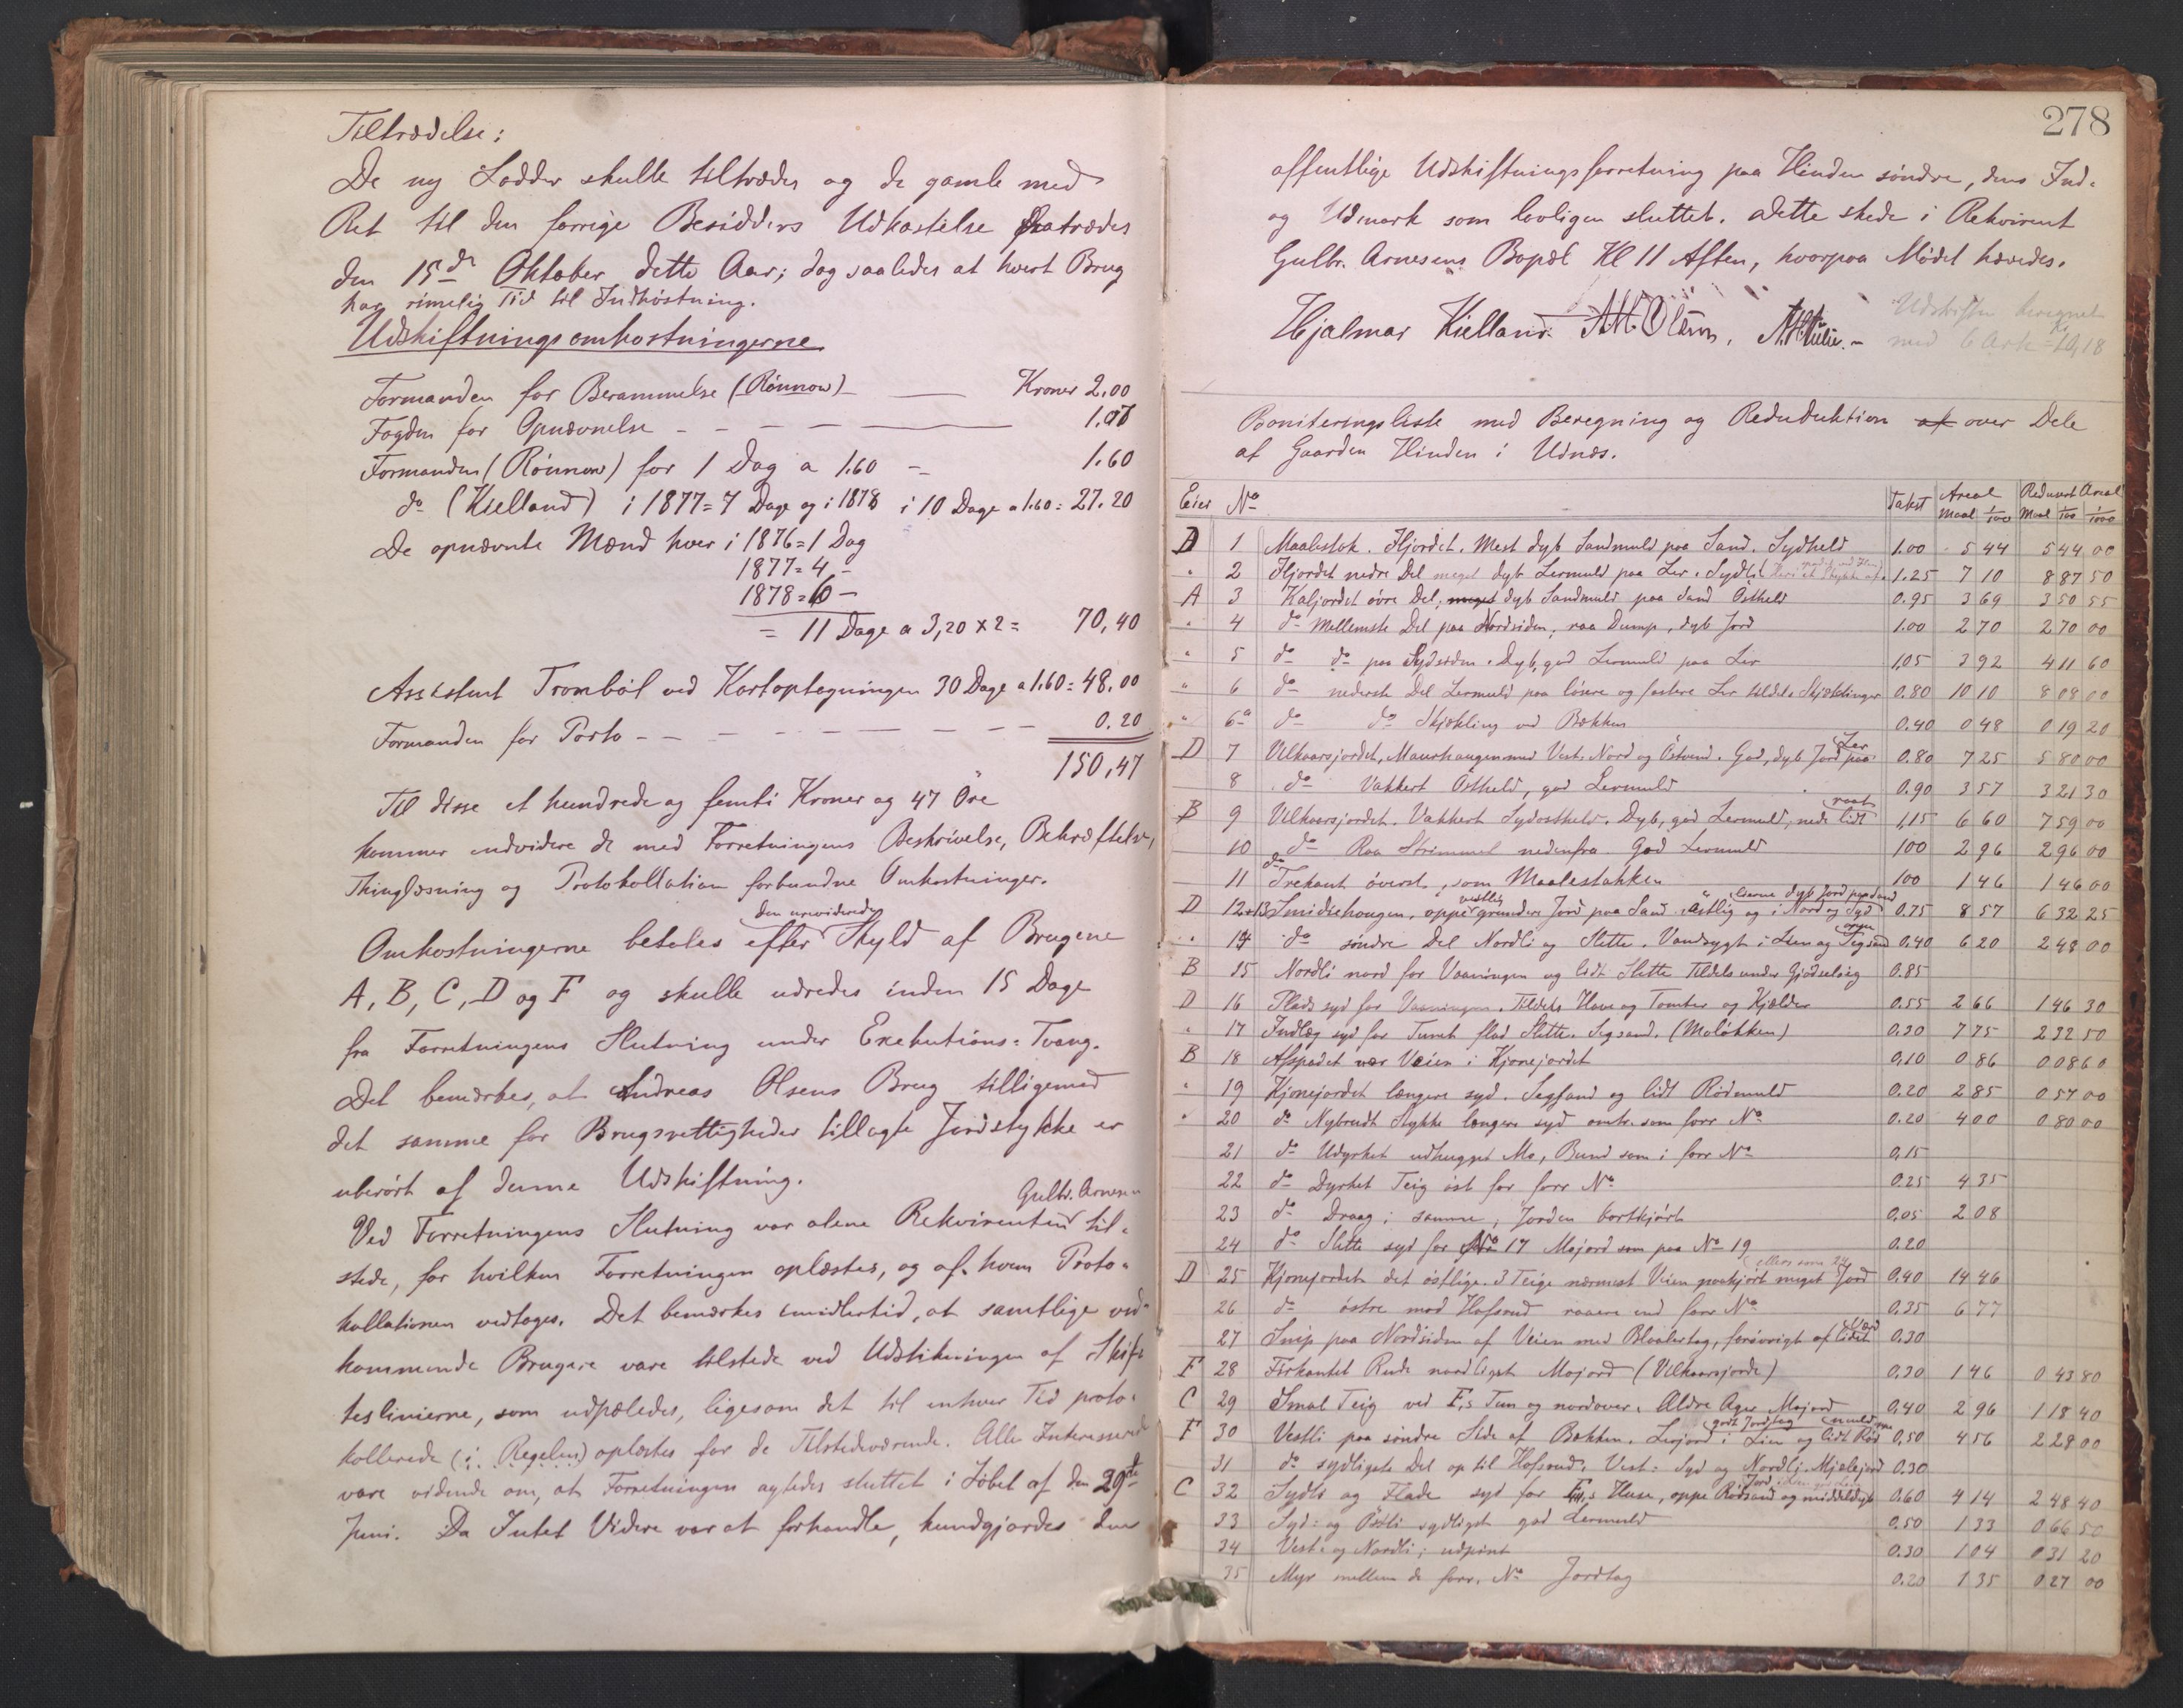 Tiltrædelse:
De ny Lodder skulle tiltrædes og de gamle med
Ret til den forrige Besidders Udkastelse fratrædes
den 15de Oktober dette Aar; dog saaledes at hvert Brug
har rimelig Tid til Indhøstning.
Udskiftningsomkostningerne
Formanden for Berammelse (Rönnow) — Kroner 2.00
Fogden for Opnævnelse - - - — 1.07
Formanden (Rönnow) for 1 Dag a 1.60 - 1.60
do (Kielland) i 1877 = 7 Dage og i 1878 i 10 Dage a 1.60 = 27.20
De opnævnte Mænd hver i 1876 = 1 Dag
1877 = 4 -
1878 = 6 -
= 11 Dage a 3,20 x 2 = 70,40
Assistent Trombøl ved Kartoptegningen 30 Dage a 1.60 = 48,00
Formanden for Porto - - - - - - - - 0.20
150,47
Til disse et hundrede og femti Kroner og 47 Øre
kommer endvidere de med Forretningens Beskrivelse, Bekræftelse,
Thinglæsning og Protokollation forbundne Omkostninger.
Omkostningerne betales efter den ureviderede Skyld af Brugene
A, B, C, D og F og skulle udredes inden 15 Dage
fra Forretningens Slutning under Exekutions-Tvang.
Det bemærkes, at Andreas Olsens Brug tilligemed
det samme for Brugsrettigheder tillagte Jordstykke er
uberørt af denne Udskiftning.
Ved Forretningens Slutning var alene Rekvirenten Gulbr. Arnesen til-
stede, for hvilken Forretningen oplæstes, og af hvem Proto-
kollationen vedtoges. Det bemærkes imidlertid, at samtlige ved-
kommende Brugere vare tilstede ved Udstikningen af Skif-
teslinierne, som udpæledes, ligesom det til enhver Tid proto-
kollerede (i Regelen) oplæstes for de Tilstedeværende. Alle Interesserede
vare vidende om, at Forretningen agtedes sluttet i Løbet af den 29de
Juni. Da Intet Videre var at forhandle, kundgjordes den
278
offentlige Udskiftningsforretning paa Hinden søndre, dens Ind-
og Udmark som lovligen sluttet. Dette skede i Rekvirent
Gulbr. Arnesens Bopæl Kl 11 Aften, hvorpaa Mødet hævedes.
Hjalmar Kielland. A. M. Olsen,
Udskriften beregnet
med 6 Ark = Kr 10,18
Boniteringsliste med Beregning og Reduduktion af over Dele
af Gaarden Hinden i Udnæs.
Eier No Takst Areal Redusert Areal
Maal 1/100 Maal 1/100 1/1000
D 1 Maalestok. Hjordet. Mest dyb Sandmuld paa Sand. Sydheld 1.00 5 44 5 44 00
" 2 Hjordet nedre Del meget dyb Lermuld paa Ler. Sydli 1.25 7 10 8 87 50
A 3 Kaljordet øvre Del, meget dyb Sandmuld paa Sand Østheld 0.95 3 69 3 50 55
" 4 do Mellemste Del paa Nordsiden, raa Dump, dyb Jord 1.00 2 70 2 70 00
" 5 do do paa Sydsiden. Dyb, god Lermuld paa Ler 1,05 3 92 4 11 60
" 6 do nederste Del Lermuld paa løsere og fastere Ler tildels Skjæklinger 0.80 10 10 8 08 00
" 6a do do Skjækling ved Bækken 0.40 0 48 0 19 20
D 7 Vilkaarsjordet, Maurhaugen med Vest- Nord og Østvend. God, dyb Jord paa Ler 0.80 7 25 5 80 00
8 do Vakkert Østheld, god Lermuld 0.90 3 57 3 21 30
B 9 Vilkaarsjordet. Vakkert Sydostheld. Dyb, god Lermuld, nede lidt raat 1,15 6 60 7 59 00
10 do Raa Strimmel nedenfra. God Lermuld 100 2 96 2 96 00
11 do Trekant øverst, som Maalestokken 100 1 46 1 46 00
D 12+13 Smidiehaugen, oppe vestlig grundere Jord paa Sand. Østlig og i Nord og Syd lierne dyb Jord paa Sand 0.75 8 57 6 32 25
" 14 do søndre Del Nordli og Slette. Vandsygt i Lien og Segsand 0.40 6 20 2 48 00
B 15 Nordli nord for Vaaningen og lidt Slette Tildels under Gjødselsig 0.85
D 16 Plads syd for Vaaningen. Tildels Have og Tomter og Kjælder 0.55 2 66 1 46 30
" 17 Indlæg syd for Tunet flad Slette. Segsand. (Moløkken) 0.30 7 75 2 32 50
B 18 Afspadet nær Veien i Kjonejordet 0,10 0 86 0 08 60
" 19 Kjonejordet længere syd. Segsand og lidt Rødmuld 0.20 2 85 0 57 00
" 20 do Nybrudt Stykke længere syd omtr. som forr No 0.20 4 00 0 80 00
21 do Udyrket udhugget Mo, Bund som i forr No 0,15
22 do Dyrket Teig øst for forr No 0.25 4 35
23 do Draag i samme, Jorden bortkjørt 0,05 2 08
24 do Slette syd for No 17 Mojord som paa No 19 0.20
D 25 Kjonejordet det østlige. 3 Teige nærmest Veien paakjørt meget Jord ellers som 24 0,40 14 46
26 do østre mod Hofsrud raaere end forr No 0.35 6 77
27 Snip paa Nordsiden af Veien med Blaalertag, forøvrigt af lidet Værd 0.30
F 28 Firkantet Rude nordligst Mojord (Vilkaarsjorde) 0,30 1 46 0 43 80
C 29 Smal Teig ved F,s Tun og nordover. Ældre Ager Mojord 0,40 2 96 1 18 40
F 30 Vestli paa søndre Side af Bækken. Lerjord i Lien godt Jordlag og lidt Rødmuld 0,50 4 56 2 28 00
31 do sydligste Del op til Hofsrud. Vest- Syd og Nordli. Mjælejord 0.30
C 32 Sydli og Flade syd for F,s Huse, oppe Rødsand og middeldyb Jord 0,60 4 14 2 48 40
33 Syd- og Østli sydligst god Lermuld 0,50 1 33 0 66 50
34 Vest- og Nordli; udpint 0.30 1 04 0 31 20
35 Myr mellem de forr. No Jordtag 0.20 1 35 0 27 00